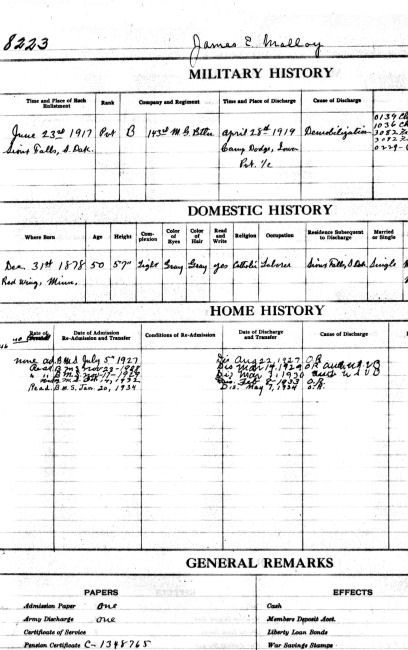 8223 James E. Malloy
MILITARY HISTORY
Time and Place of Each Enlistment Rank Company and Regiment Time and Place of Discharge Cause of Discharge
June 23rd 1917 Pvt B 143rd M.G. Bttn April 28th 1919 Demobilization
Sioux Falls, S. Dak. Camp Dodge, Iowa
Pvt. 1/c
DOMESTIC HISTORY
Where Born Age Height Complexion Color of Eyes Color of Hair Read and Write Religion Occupation Residence Subsequent to Discharge Married or Single
Dec. 31st 1878 50 5'7" Light Gray Gray yes Catholic Laborer Sioux Falls, S. Dak Single
Red Wing, Minn,
HOME HISTORY
Rate of Date of Admission Re-Admission and Transfer Conditions of Re-Admission Date of Discharge and Transfer Cause of Discharge
none ad. B.M.S July 5th 1927 Dis Aug 22, 1927 O.R
Dis Mar 19, 1929 O.R
B.M.S. Nov-17-1929 Dis Mar 3, 1930
1932 Dis. Feb 8-1933 O.R.
Read. B.M.S. Jan. 20, 1934 Dis. May 7, 1934 O.R.
GENERAL REMARKS
PAPERS EFFECTS
Admission Paper one Cash
Army Discharge one Members Deposit Acct.
Certificate of Service Liberty Loan Bonds
Pension Certificate C-1348765 War Savings Stamps